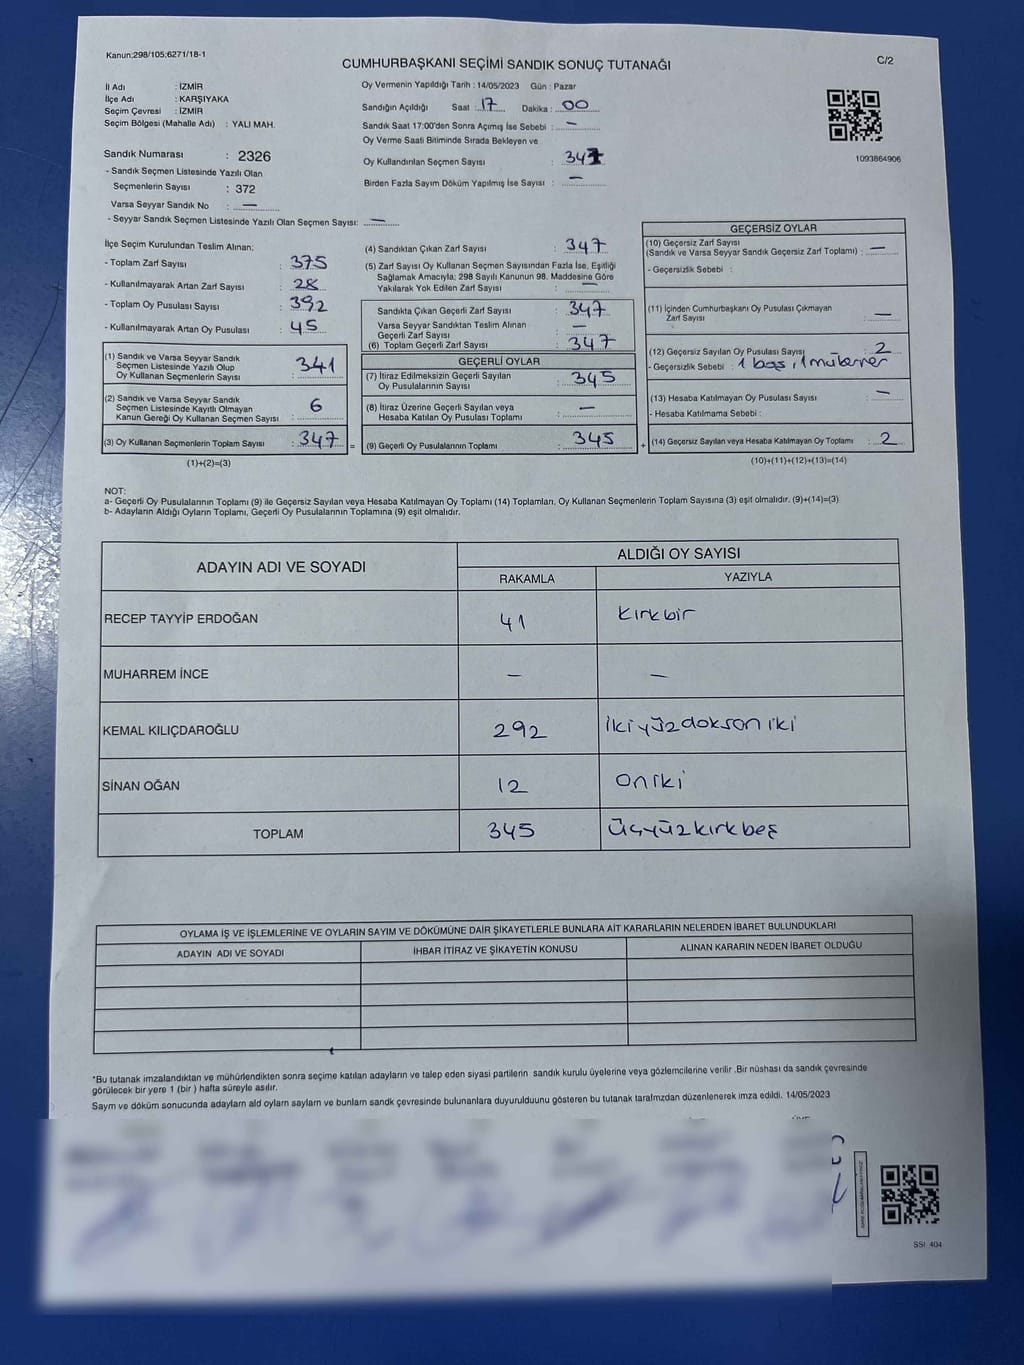 Kanun:298/105;6271/18-1
CUMHURBAŞKANI SEÇİMİ SANDIK SONUÇ TUTANAĞI
C/2
İl Adı : İZMİR
İlçe Adı : KARŞIYAKA
Seçim Çevresi : İZMİR
Seçim Bölgesi (Mahalle Adı) : YALI MAH.
Sandık Numarası : 2326
- Sandık Seçmen Listesinde Yazılı Olan
Seçmenlerin Sayısı : 372
Varsa Seyyar Sandık No : —
- Seyyar Sandık Seçmen Listesinde Yazılı Olan Seçmen Sayısı: —
Oy Vermenin Yapıldığı Tarih : 14/05/2023 Gün : Pazar
Sandığın Açıldığı Saat : 17 Dakika : 00
Sandık Saat 17:00'den Sonra Açımış İse Sebebi : —
Oy Verme Saati Bitiminde Sırada Bekleyen ve
Oy Kullandırılan Seçmen Sayısı : 347
Birden Fazla Sayım Döküm Yapılmış İse Sayısı : —
1093864906
İlçe Seçim Kurulundan Teslim Alınan;
- Toplam Zarf Sayısı : 375
- Kullanılmayarak Artan Zarf Sayısı : 28
- Toplam Oy Pusulası Sayısı : 392
- Kullanılmayarak Artan Oy Pusulası : 45
(1) Sandık ve Varsa Seyyar Sandık
Seçmen Listesinde Yazılı Olup
Oy Kullanan Seçmenlerin Sayısı : 341
(2) Sandık ve Varsa Seyyar Sandık
Seçmen Listesinde Kayıtlı Olmayan
Kanun Gereği Oy Kullanan Seçmen Sayısı : 6
(3) Oy Kullanan Seçmenlerin Toplam Sayısı : 347 =
(1)+(2)=(3)
(4) Sandıktan Çıkan Zarf Sayısı : 347
(5) Zarf Sayısı Oy Kullanan Seçmen Sayısından Fazla İse, Eşitliği
Sağlamak Amacıyla; 298 Sayılı Kanunun 98. Maddesine Göre
Yakılarak Yok Edilen Zarf Sayısı : —
Sandıkta Çıkan Geçerli Zarf Sayısı : 347
Varsa Seyyar Sandıktan Teslim Alınan
Geçerli Zarf Sayısı : —
(6) Toplam Geçerli Zarf Sayısı : 347
GEÇERLİ OYLAR
(7) İtiraz Edilmeksizin Geçerli Sayılan
Oy Pusulalarının Sayısı : 345
(8) İtiraz Üzerine Geçerli Sayılan veya
Hesaba Katılan Oy Pusulası Toplamı : —
(9) Geçerli Oy Pusulalarının Toplamı : 345 +
GEÇERSİZ OYLAR
(10) Geçersiz Zarf Sayısı
(Sandık ve Varsa Seyyar Sandık Geçersiz Zarf Toplamı) : —
- Geçersizlik Sebebi :
(11) İçinden Cumhurbaşkanı Oy Pusulası Çıkmayan
Zarf Sayısı : —
(12) Geçersiz Sayılan Oy Pusulası Sayısı : 2
- Geçersizlik Sebebi : 1 boş, 1 mükerrer
(13) Hesaba Katılmayan Oy Pusulası Sayısı : —
- Hesaba Katılmama Sebebi :
(14) Geçersiz Sayılan veya Hesaba Katılmayan Oy Toplamı : 2
(10)+(11)+(12)+(13)=(14)
NOT:
a- Geçerli Oy Pusulalarının Toplamı (9) ile Geçersiz Sayılan veya Hesaba Katılmayan Oy Toplamı (14) Toplamları, Oy Kullanan Seçmenlerin Toplam Sayısına (3) eşit olmalıdır. (9)+(14)=(3)
b- Adayların Aldığı Oyların Toplamı, Geçerli Oy Pusulalarının Toplamına (9) eşit olmalıdır.
ADAYIN ADI VE SOYADI
ALDIĞI OY SAYISI
RAKAMLA YAZIYLA
RECEP TAYYİP ERDOĞAN 41 Kırkbir
MUHARREM İNCE — —
KEMAL KILIÇDAROĞLU 292 İkiyüzdoksoniki
SİNAN OĞAN 12 Oniki
TOPLAM 345 Üçyüzkırkbeş
OYLAMA İŞ VE İŞLEMLERİNE VE OYLARIN SAYIM VE DÖKÜMÜNE DAİR ŞİKAYETLERLE BUNLARA AİT KARARLARIN NELERDEN İBARET BULUNDUKLARI
ADAYIN ADI VE SOYADI İHBAR İTİRAZ VE ŞİKAYETİN KONUSU ALINAN KARARIN NEDEN İBARET OLDUĞU
*Bu tutanak imzalandıktan ve mühürlendikten sonra seçime katılan adayların ve talep eden siyasi partilerin sandık kurulu üyelerine veya gözlemcilerine verilir .Bir nüshası da sandık çevresinde
görülecek bir yere 1 (bir ) hafta süreyle asılır.
Saym ve döküm sonucunda adaylarn ald oylarn saylarn ve bunlarn sandk çevresinde bulunanlara duyurulduunu gösteren bu tutanak taraImzdan düzenlenerek imza edildi. 14/05/2023
SSI 404